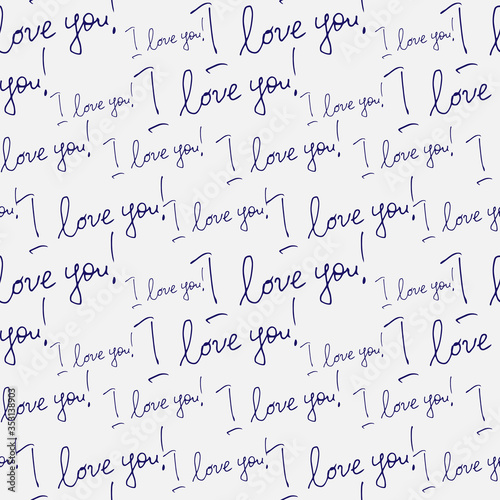 love you! I love you! I love you! I
you! I love you! I love you!
love you! I love you! I love you! I
you! I love you! I love you! I love you! I
love you! I love you! I love you! I love you! I
you! I love you! I love you! I love
love you! I love you! I love you! I
you! I love you! I love you! I love you!
Adobe Stock | #358138903